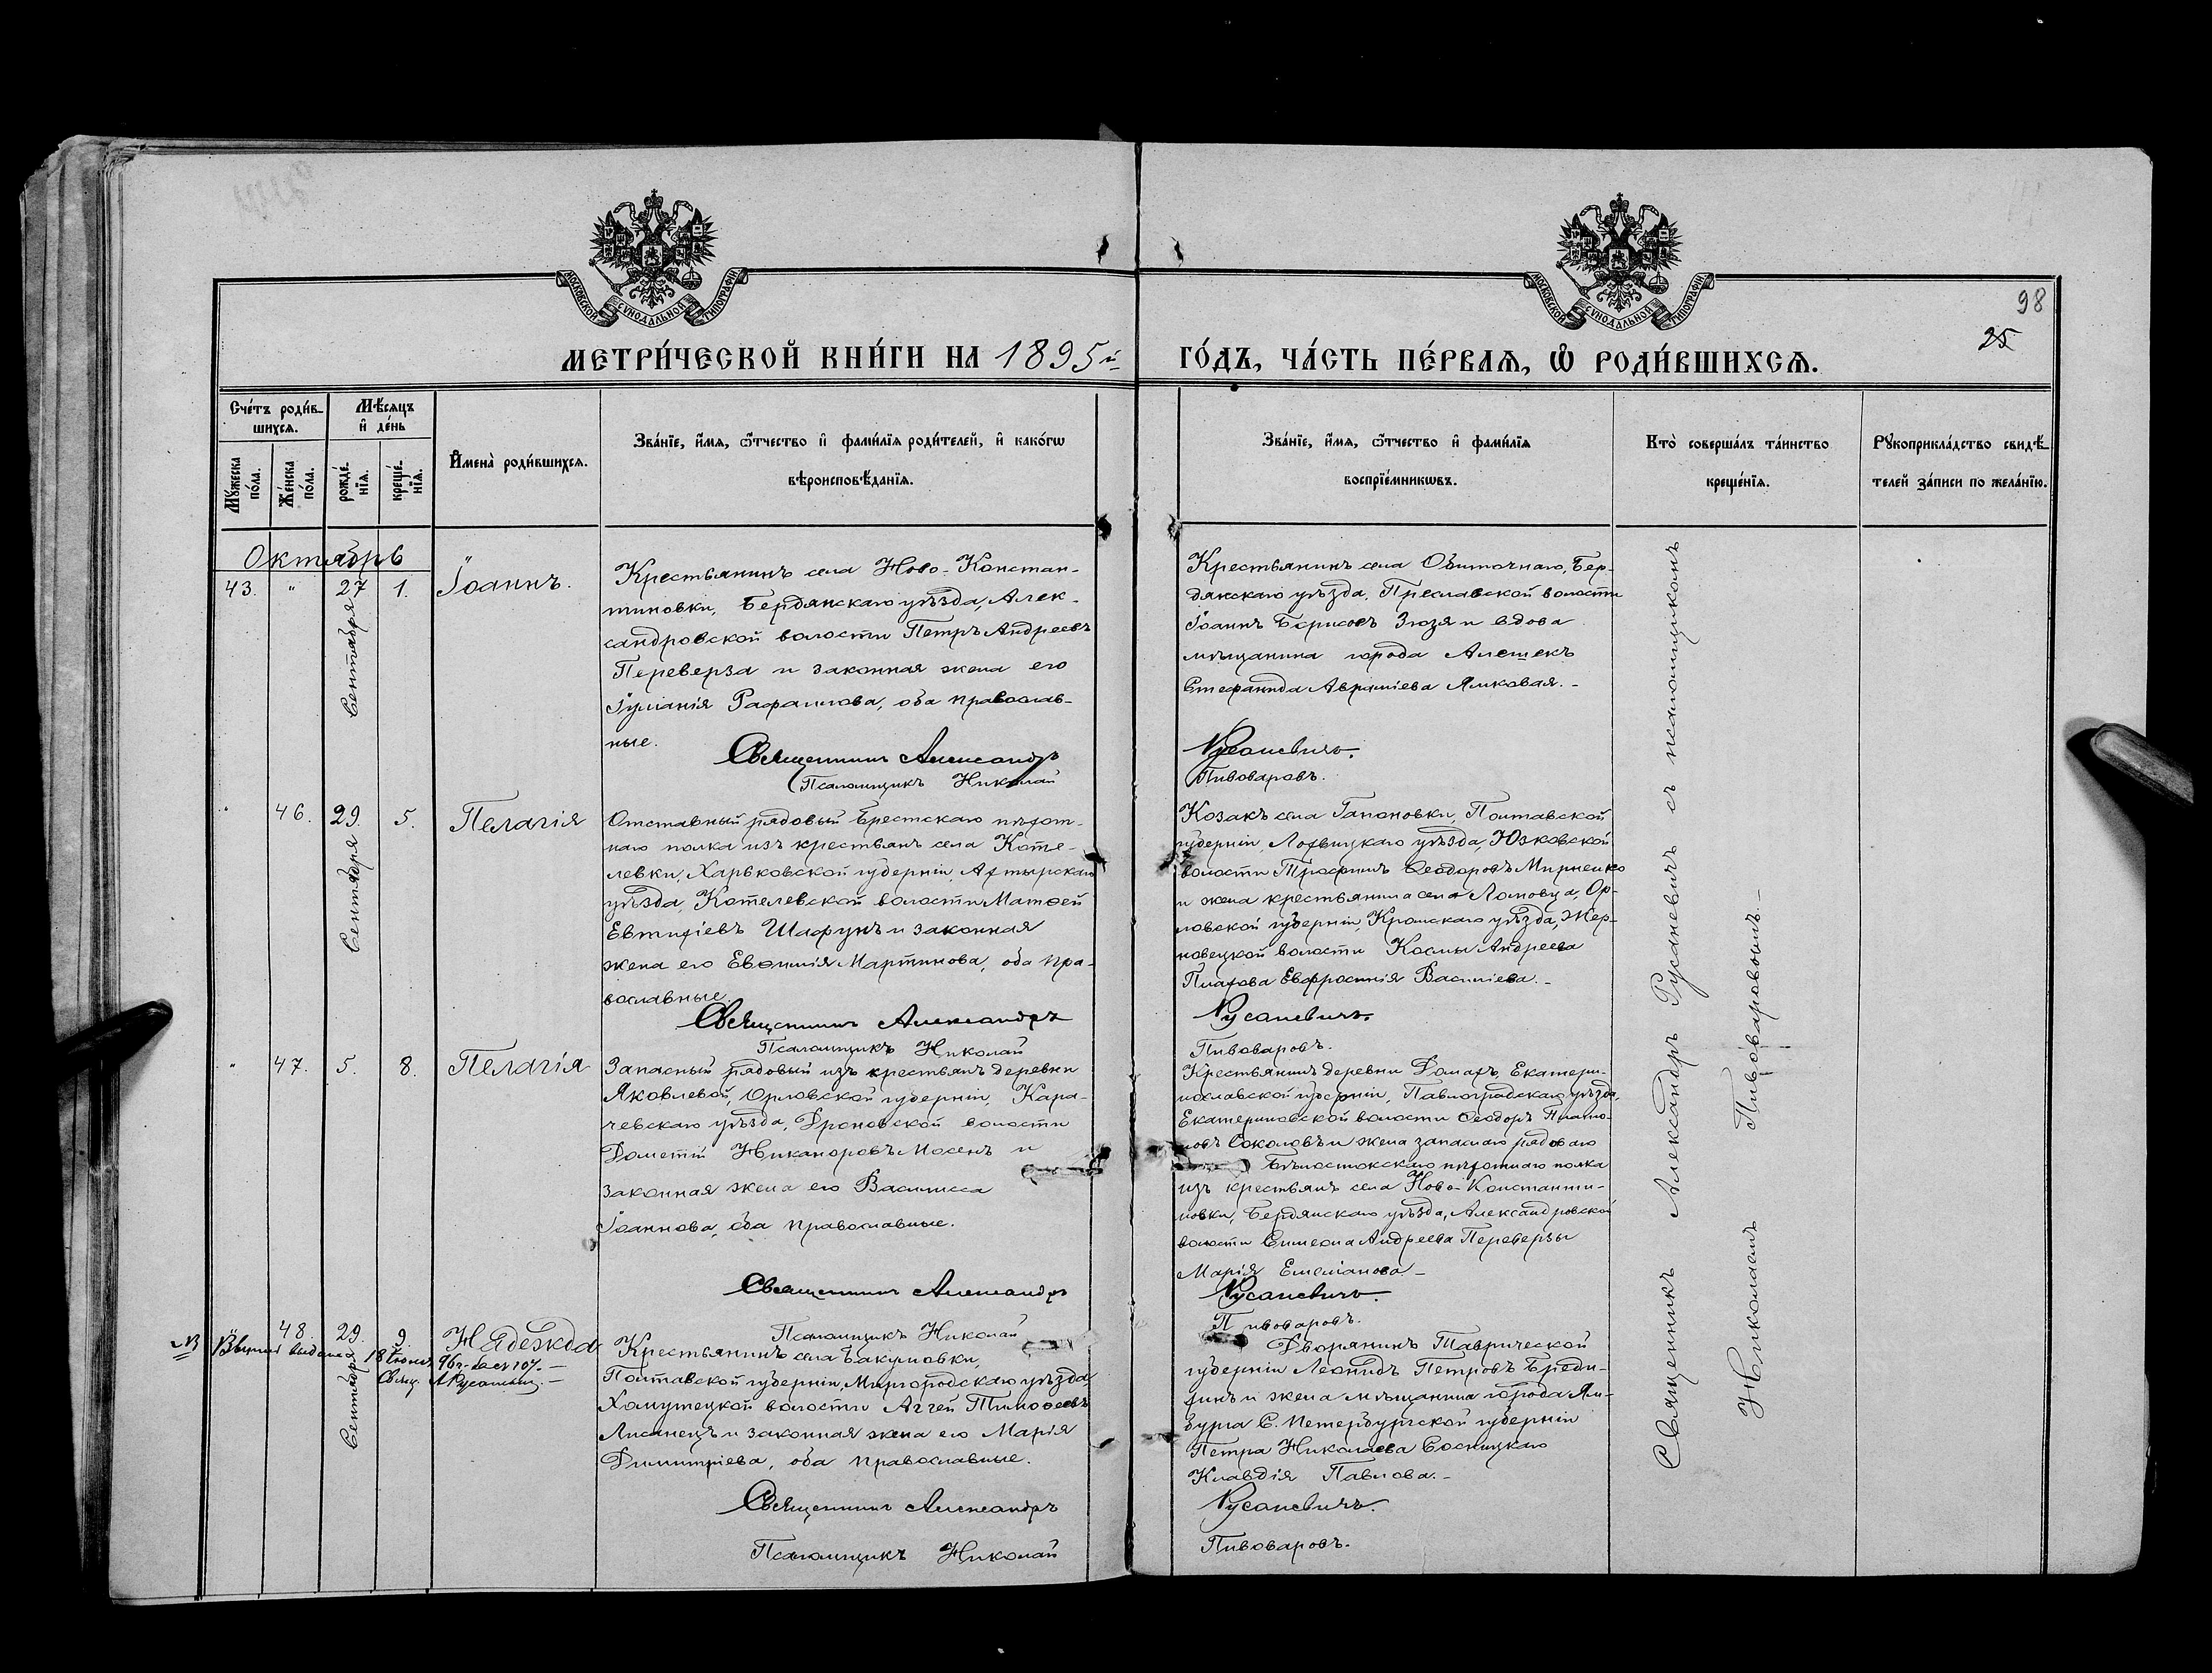 МОСКОВСКОЙ СУНОДАЛЬНОЙ ТИПОГРАФІИ
МОСКОВСКОЙ СУНОДАЛЬНОЙ ТИПОГРАФІИ
98
25
МЕТРИ́ЧЕСКОЙ КНИ́ГИ НА 1895й
ГО́ДЪ, ЧА́СТЬ ПЕ́РВАѦ, Ѡ РОДИ́ВШИХСѦ.
Сче́тъ роди́в-
шихсѧ.
Мꙋ́жеска по́ла.
Же́нска по́ла.
Мѣ́сѧцъ
и҆ де́нь
рожде́-
нїѧ.
креще́-
нїѧ.
И҆мена̀ роди́вшихсѧ.
Зва́нїе, и҆́мѧ, ѻ҆́тчество и҆ фами́лїѧ роди́телей, и҆ како́гѡ
вѣроисповѣ́данїѧ.
Зва́нїе, и҆́мѧ, ѻ҆́тчество и҆ фами́лїѧ
воспрїе́мникѡвъ.
Кто̀ соверша́лъ та́инство
креще́нїѧ.
Рꙋкоприкла́дство свидѣ́-
телей за́писи по жела́нїю.
Октябрь
43. " 27 Сентября 1. Іоаннъ.
Крестьянинъ села Ново-Констан-
тиновки, Бердянскаго уѣзда, Алек-
сандровской волости Петръ Андреевъ
Переверза и законная жена его
Іуліанія Рафаилова, оба православ-
ные.
Священникъ Александръ
Псаломщикъ Николай
Крестьянинъ села Обиточнаго, Бер-
дянскаго уѣзда, Преславской волости
Іоаннъ Борисовъ Зюзя и вдова
мѣщанина города Алешекъ
Стефанида Авраміева Ямковая.-
Русаневичъ.
Пивоваровъ.
" 46. 29. Сентября 5. Пелагія
Отставный рядовый Брестскаго пѣхот-
наго полка изъ крестьянъ села Коте-
левки, Харьковской губерніи, Ахтырскаго
уѣзда, Котелевской волости Матѳей
Евтихіевъ Шафунъ и законная
жена его Евѳимія Мартинова, оба пра-
вославные.
Священникъ Александръ
Псаломщикъ Николай
Козакъ села Гапоновки, Полтавской
губерніи, Лохвицкаго уѣзда, Юсковской
волости Трофимъ Ѳеодоровъ Мирненко
и жена крестьянина села Ломовца, Ор-
ловской губерніи, Кромскаго уѣзда, Жер-
новецкой волости Космы Андреева
Плахова Евфросинія Василіева.-
Русаневичъ.
Пивоваровъ.
" 47. 5. 8. Пелагія
Запасный рядовый изъ крестьянъ деревни
Яковлевой, Орловской губерніи, Кара-
чевскаго уѣзда, Дроновской волости
Дометій Никаноровъ Мосенъ и
законная жена его Василисса
Іоаннова, оба православные.
Священникъ Александръ
Псаломщикъ Николай
Крестьянинъ деревни Домахъ, Екатери-
нославской губерніи, Павлоградскаго уѣзда,
Екатериновской волости Ѳеодоръ Плато-
новъ Соколовъ и жена запаснаго рядоваго
Бѣлостокскаго пѣхотнаго полка
изъ крестьянъ села Ново-Константи-
новки, Бердянскаго уѣзда, Александровской
волости Симеона Андреева Переверзы
Марія Емеліанова.-
Русаневичъ.
Пивоваровъ.
" 48. 29. Сентября 9. Надежда
Крестьянинъ села Бакумовки,
Полтавской губерніи, Миргородскаго уѣзда
Хомутецкой волости Аггей Тимоѳеевъ
Лисанецъ и законная жена его Марія
Димитріева, оба православные.
Священникъ Александръ
Псаломщикъ Николай
Дворянинъ Таврической
губерніи Леонидъ Петровъ Бреди-
хинъ и жена мѣщанина города Ям-
бурга С. Петербургской губерніи
Петра Николаева Сосницкаго
Клавдія Павлова.-
Русаневичъ.
Пивоваровъ.
Священникъ Александръ Русаневичъ съ псаломщикомъ
Николаемъ Пивоваровымъ.-